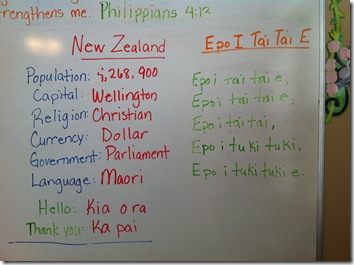 trengthens me. Philippians 4:13
New Zealand
Population: 4,268,900
Capital: Wellington
Religion: Christian
Currency: Dollar
Government: Parliament
Language: Maori
Hello: Kia ora
Thank you: Ka pai
Epo I Tai Tai E
Epo i tai tai e,
Epo i tai tai e,
Epo i tai tai,
Epo i tuki tuki,
Epo i tuki tuki e.